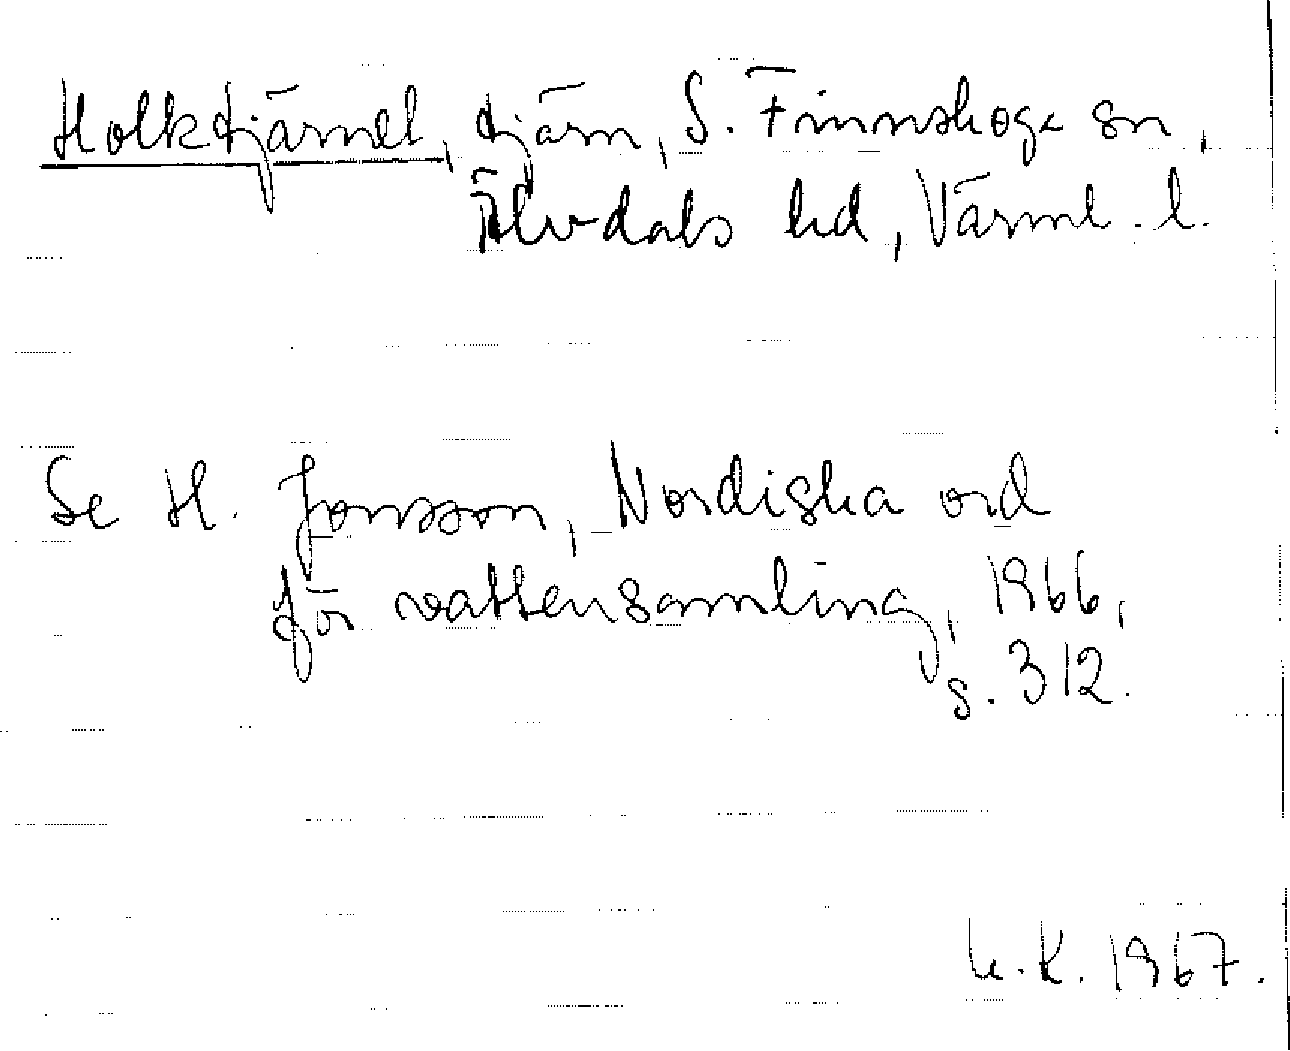 Holktjärnet, tjärn, S. Finnskoga sn,
Älvdals hd, Värml. l.
Se H. Jonsson, Nordiska ord
för vattensamling, 1966,
s. 312.
K. 1967.